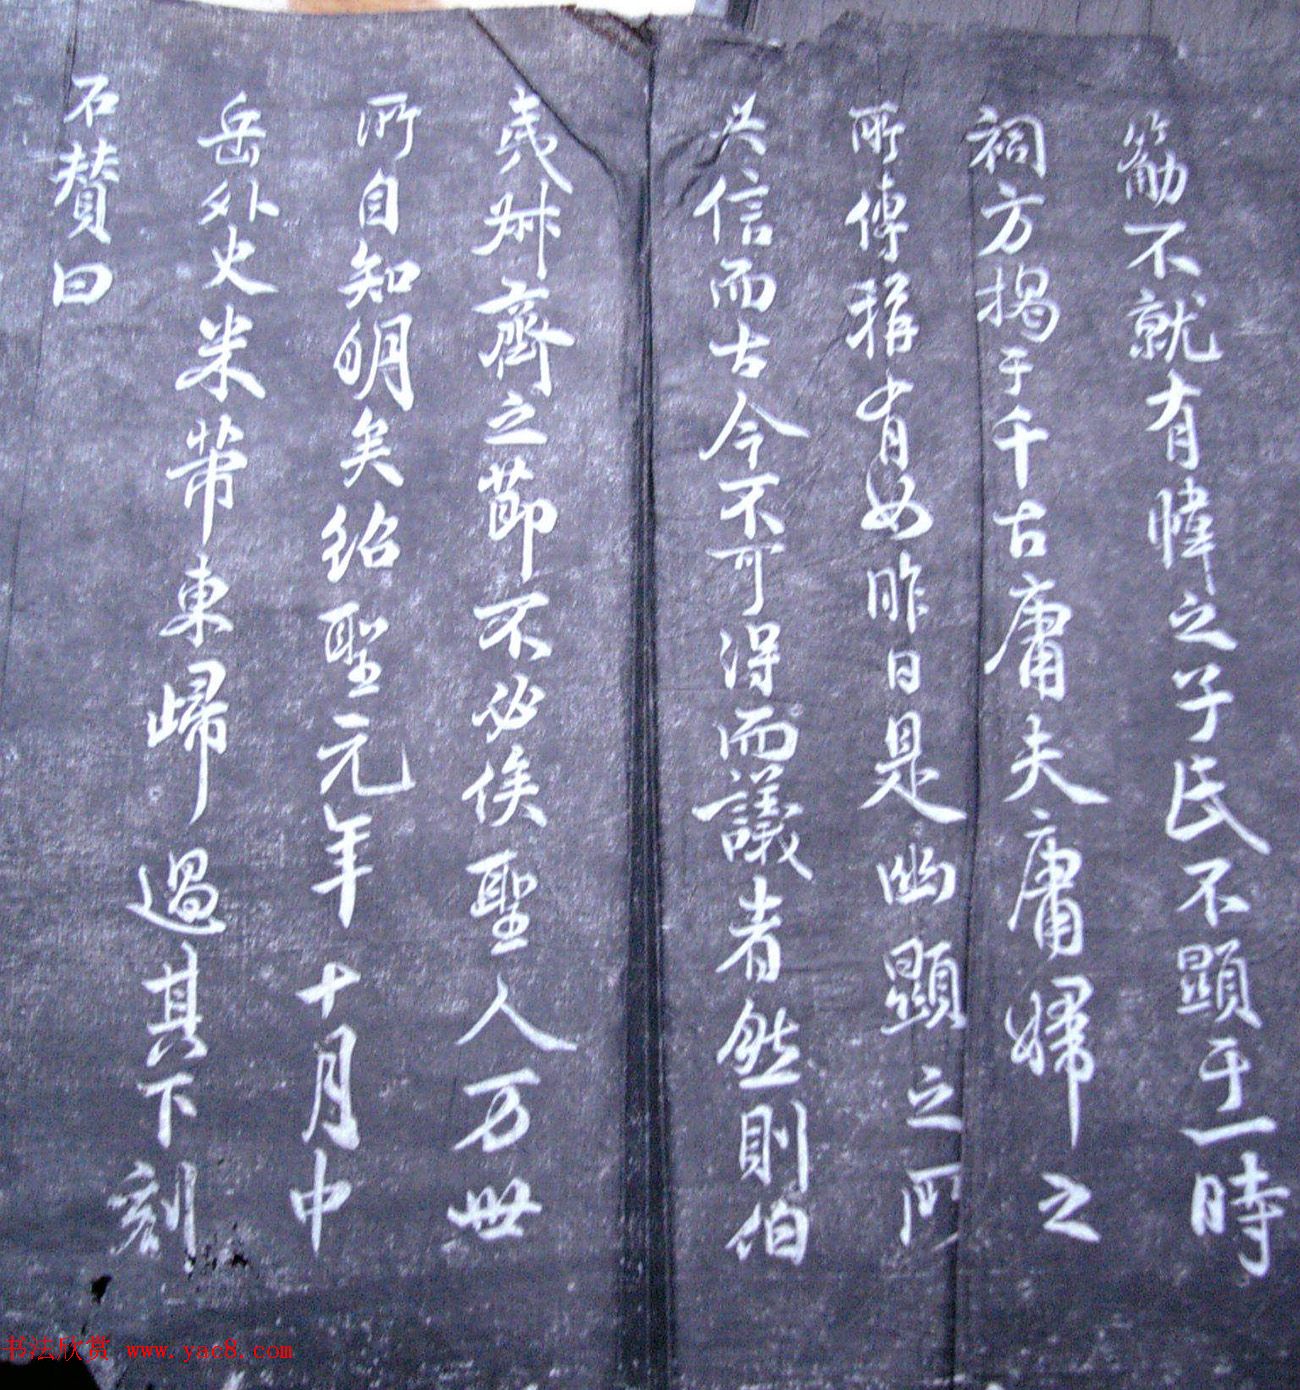 勛不就有幃之子氏不顯于一時
祠方揭于千古庸夫庸婦之
所傳稱有如昨日是幽顯之所
共信而古今不可得而議者然則伯
夷叔齊之節不必俟聖人万世
所自知明矣紹聖元年十月中
岳外史米芾東歸過其下刻
石賛曰
书法欣赏 www.yac8.com